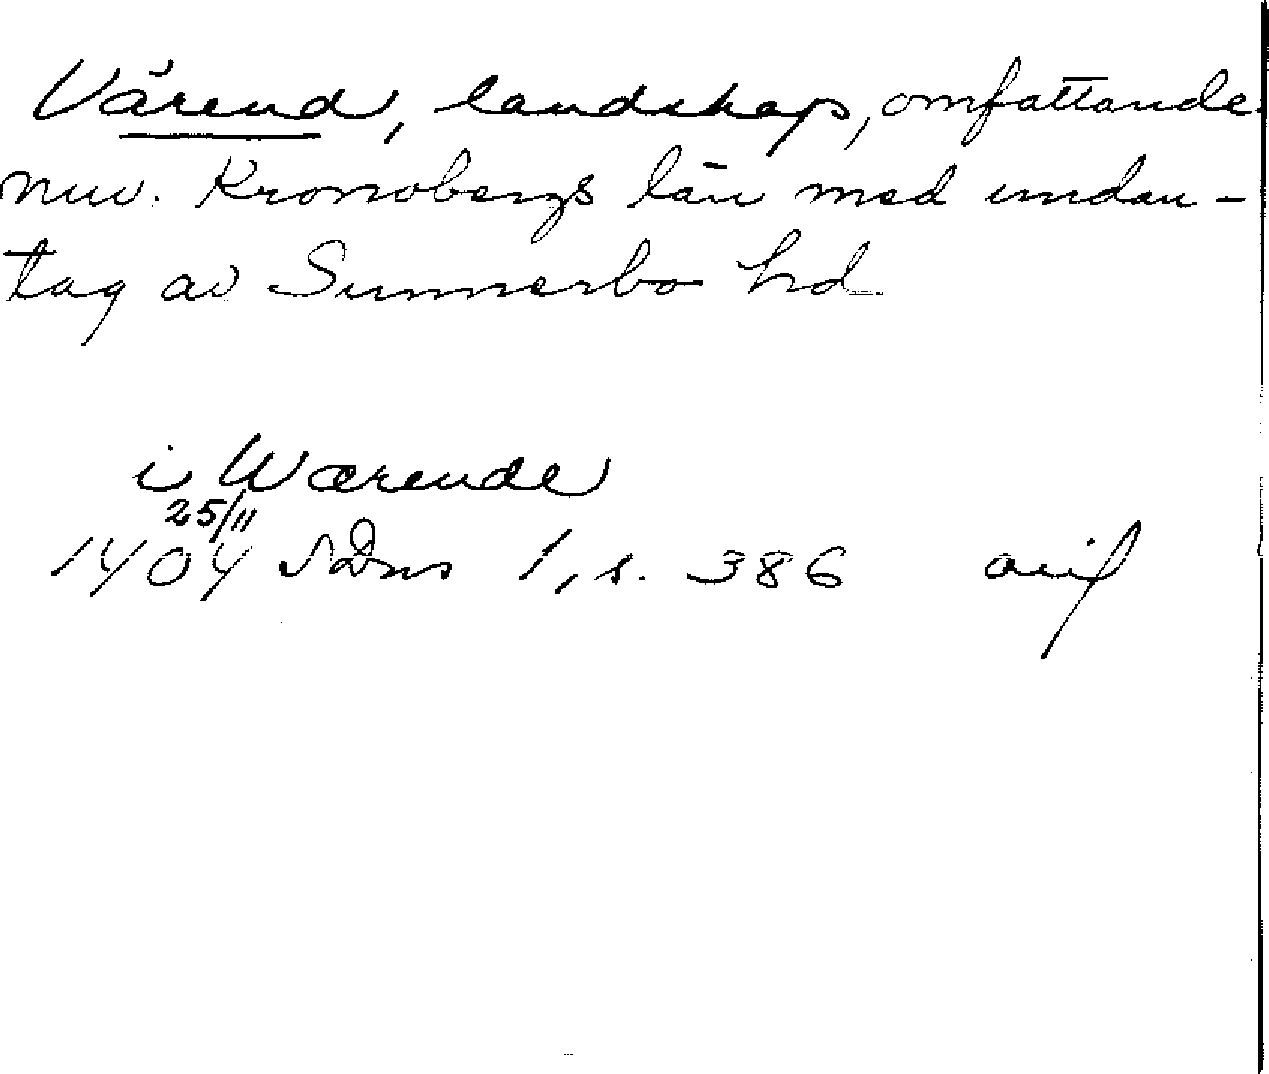 Värend, landskap, omfattande
nuv. Kronobergs län med undan-
tag av Sunnerbo hd.
i Wærende
25/11
1404 SDns 1, s. 386 avs